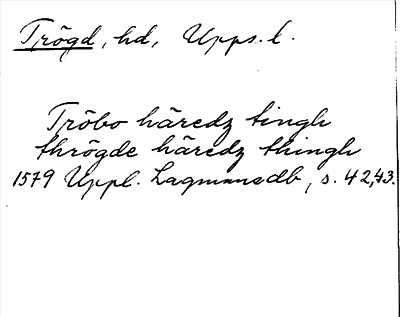 Trögd, hd, Upps. l.
Tröbo häredz tingh
thrögde häredz thingh
1579 Uppl. Lagmansdb, s. 42,43.